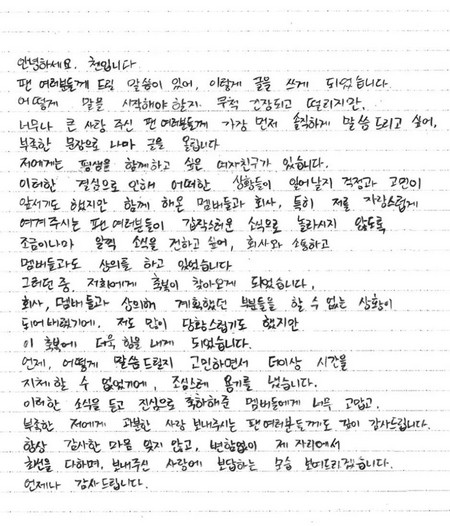 안녕하세요. 첸입니다
팬 여러분들께 드릴 말씀이 있어, 이렇게 글을 쓰게 되었습니다
어떻게 말을 시작해야 할지 무척 긴장되고 떨리지만,
너무나 큰 사랑 주신 팬 여러분들께 가장 먼저 솔직하게 말씀드리고 싶어,
부족한 문장으로 나마 글을 올립니다
저에게는 평생을 함께하고 싶은 여자친구가 있습니다.
이러한 결심으로 인해 어떠한 상황들이 일어날지 걱정과 고민이
앞서기도 했지만 함께 해온 멤버들과 회사, 특히 저를 자랑스럽게
여겨주시는 팬 여러분들이 갑작스러운 소식으로 놀라시지 않도록
조금이나마 일찍 소식을 전하고 싶어, 회사와 소통하고
멤버들과도 상의를 하고 있었습니다
그러던 중, 저희에게 축복이 찾아오게 되었습니다.
회사, 멤버들과 상의해 계획했던 부분들을 할 수 없는 상황이
되어버렸기에, 저도 많이 당황스럽기도 했지만
이 축복에 더욱 힘을 내게 되었습니다.
언제, 어떻게 말씀드릴지 고민하면서 더이상 시간을
지체할 수 없었기에, 조심스레 용기를 냈습니다.
이러한 소식을 듣고 진심으로 축하해준 멤버들에게 너무 고맙고,
부족한 저에게 과분한 사랑 보내주시는 팬 여러분들께도 깊이 감사드립니다.
항상 감사한 마음 잊지 않고, 변함없이 제 자리에서
최선을 다하며, 보내주신 사랑에 보답하는 모습 보여드리겠습니다.
언제나 감사드립니다.